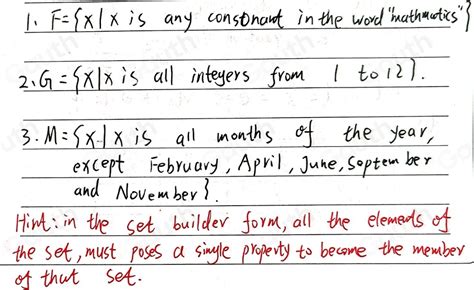 1. F={x|x is any consonant in the word "mathmatics"}
2. G={x|x is all integers from 1 to 12}.
3. M={x|x is all months of the year,
except February, April, June, September
and November}.
Hint: in the set builder form, all the elements of
the set, must poses a single property to become the member
of that set.